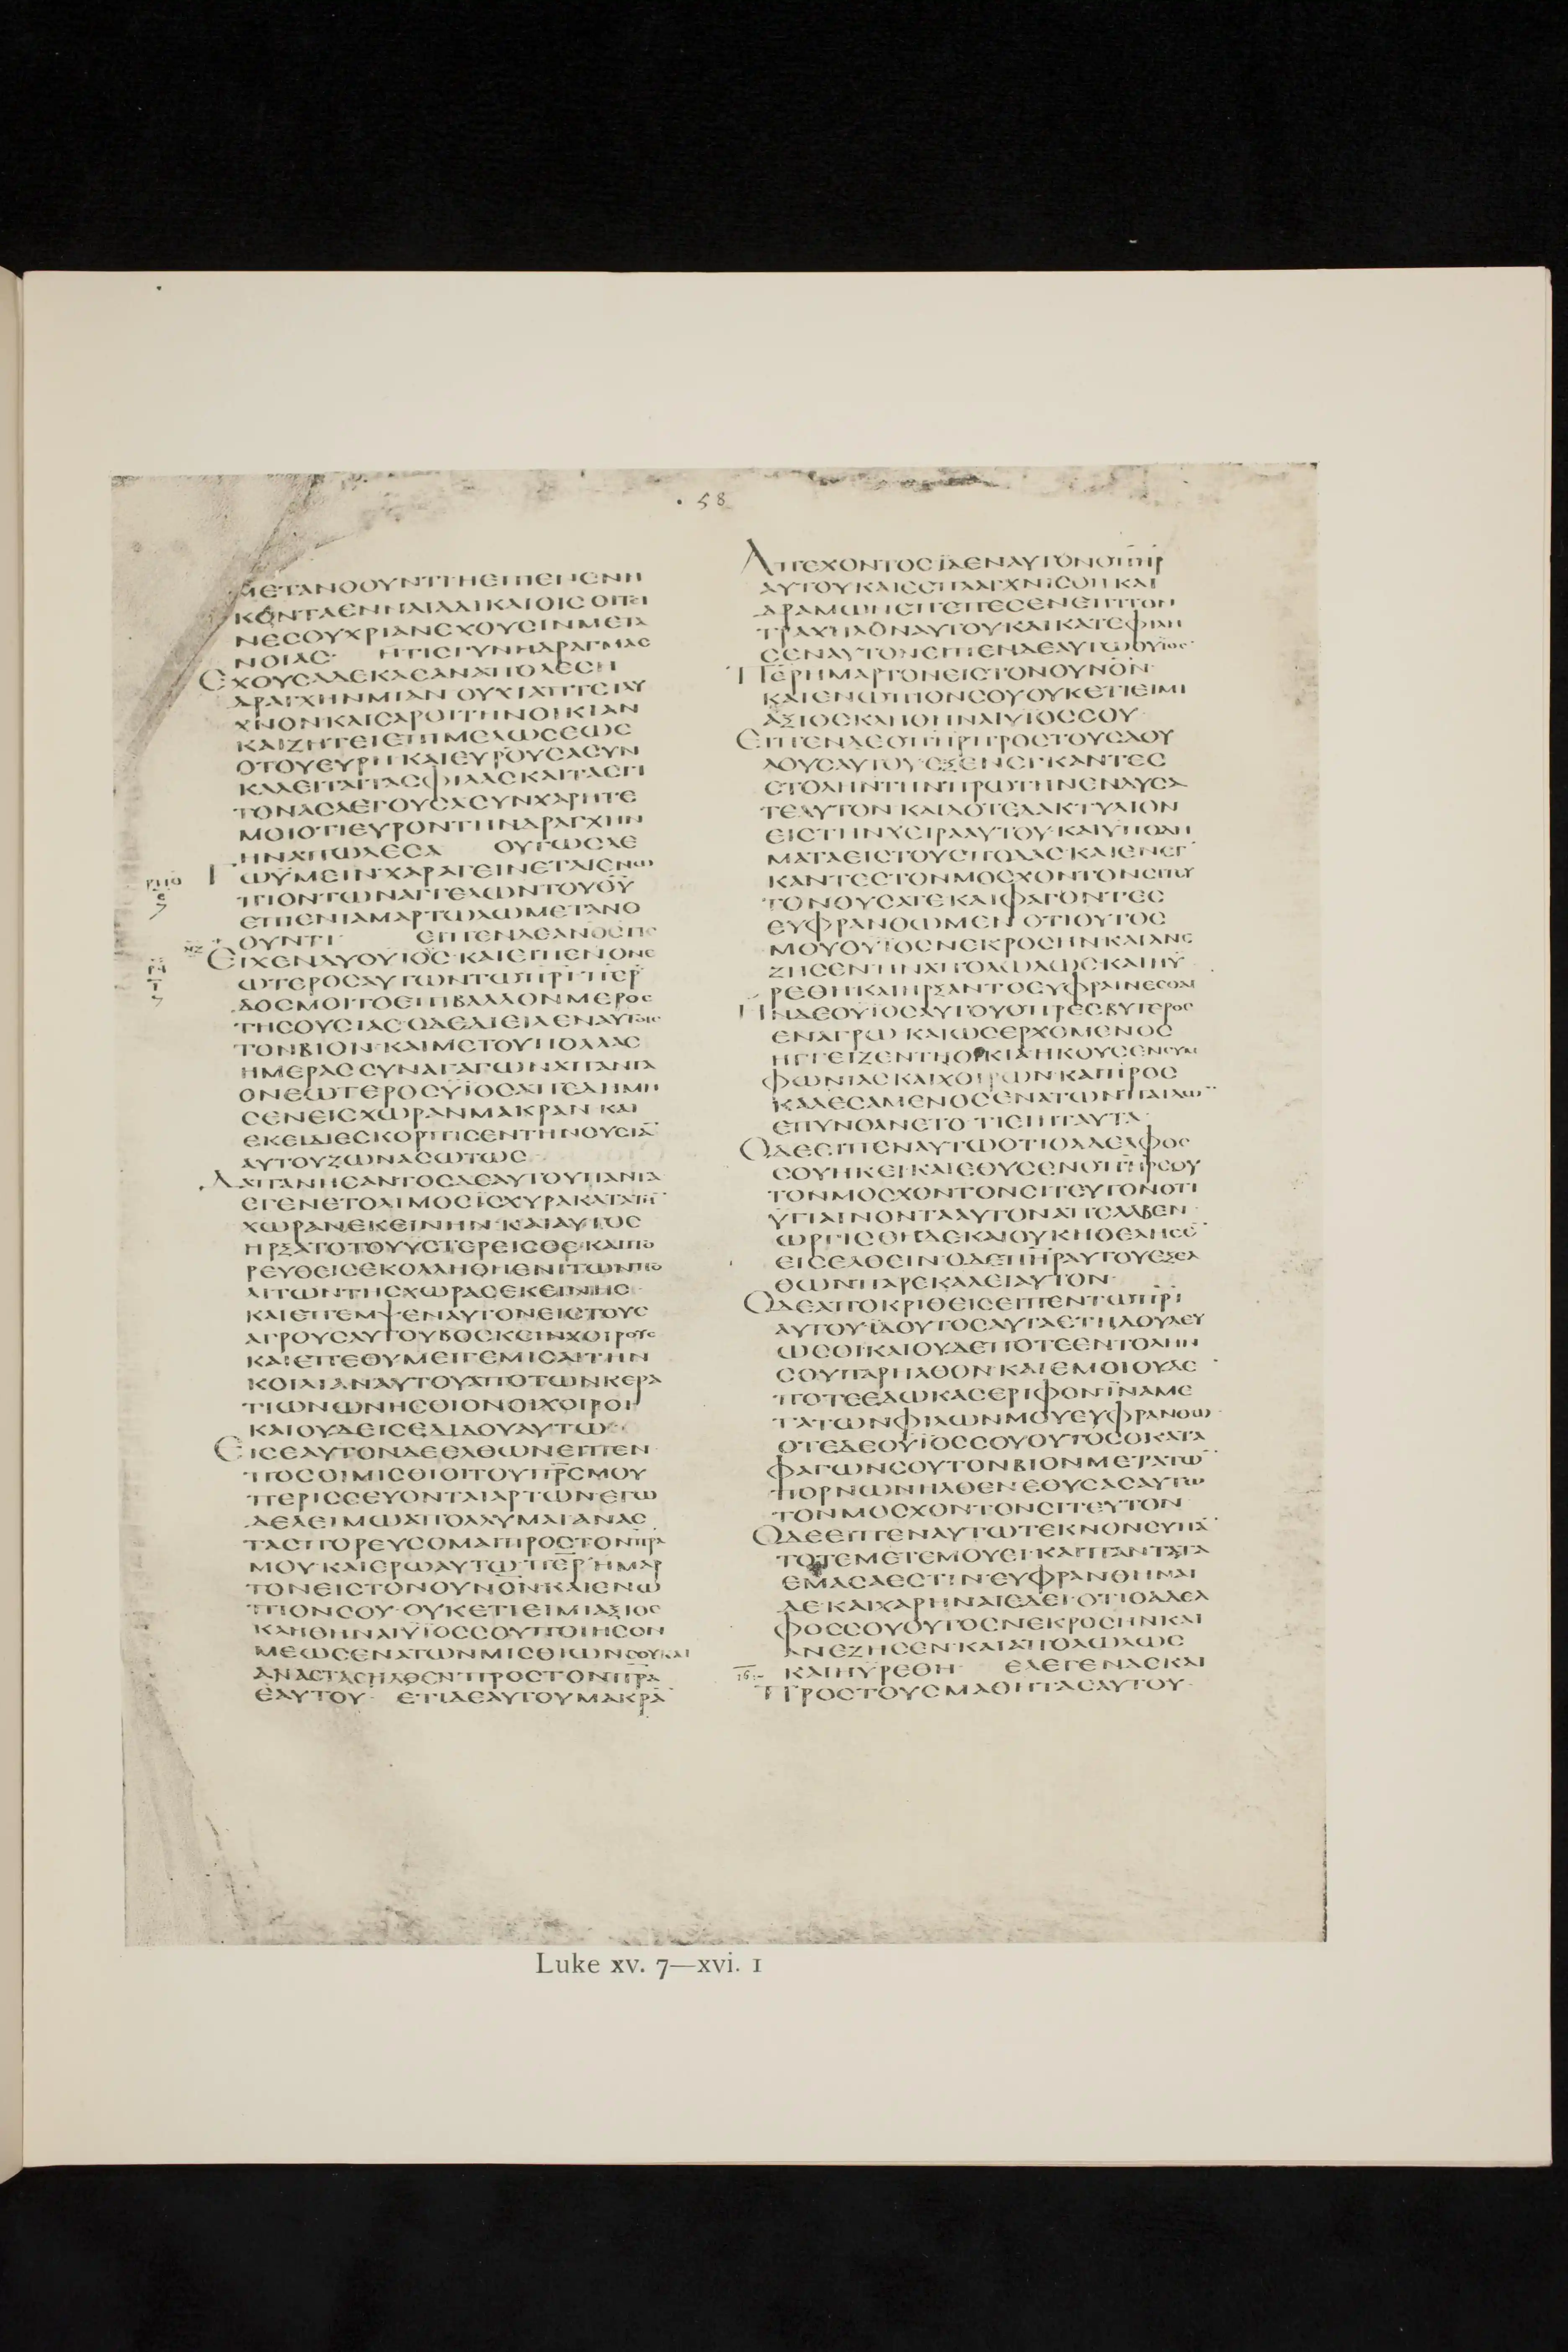 · 58
ΜΕΤΑΝΟΟΥΝΤΙΗΕΠΙΕΝΕΝΗ
ΚΟΝΤΑΕΝΝΑΙΔΙΚΑΙΟΙϹΟΙΤΙ
ΝΕϹΟΥΧΡΙΑΝΕΧΟΥϹΙΝΜΕΤΑ
ΝΟΙΑϹ· ΗΤΙϹΓΥΝΗΔΡΑΓΜΑϹ
ΕΧΟΥϹΑΔΕΚΑΕΑΝΑΠΟΛΕϹΗ
ΔΡΑΓΧΗΝΜΙΑΝ ΟΥΧΙΑΠΤΕΙΛΥ
ΧΝΟΝΚΑΙϹΑΡΟΙΤΗΝΟΙΚΙΑΝ
ΚΑΙΖΗΤΕΙΕΠΙΜΕΛΩϹΕΩϹ
ΟΤΟΥΕΥΡΗ·ΚΑΙΕΥΡΟΥϹΑϹΥΝ
ΚΑΛΕΙΤΑΙΤΑϹΦΙΛΑϹΚΑΙΤΑϹΓΙ
ΤΟΝΑϹΛΕΓΟΥϹΑϹΥΝΧΑΡΗΤΕ
ΜΟΙΟΤΙΕΥΡΟΝΤΗΝΔΡΑΓΧΗΝ
ΗΝΑΠΩΛΕϹΑ ΟΥΤΩϹΛΕ
ΓΩΫΜΕΙΝ·ΧΑΡΑΓΕΙΝΕΤΑΙΕΝΩ
ΠΙΟΝΤΩΝΑΓΓΕΛΩΝΤΟΥΘ̅Υ̅
ΕΠΙΕΝΙΑΜΑΡΤΩΛΩΜΕΤΑΝΟ
ΟΥΝΤΙ· ΕΙΠΕΝΔΕΑΝΟϹΤΙϹ
ΕΙΧΕΝΔΥΟΥΪΟΥϹ·ΚΑΙΕΙΠΕΝΟΝΕ
ΩΤΕΡΟϹΑΥΤΩΝΤΩΠ̅Ρ̅Ι̅·Π̅Ε̅Ρ̅
ΔΟϹΜΟΙΤΟΕΠΙΒΑΛΛΟΝΜΕΡΟϹ
ΤΗϹΟΥϹΙΑϹ·ΟΔΕΔΙΕΙΛΕΝΑΥΤΟΙϹ
ΤΟΝΒΙΟΝ·ΚΑΙΜΕΤΟΥΠΟΛΛΑϹ
ΗΜΕΡΑϹϹΥΝΑΓΑΓΩΝΑΠΑΝΤΑ
ΟΝΕΩΤΕΡΟϹΥΪΟϹΑΠΕΔΗΜΗ
ϹΕΝΕΙϹΧΩΡΑΝΜΑΚΡΑΝ·ΚΑΙ
ΕΚΕΙΔΙΕϹΚΟΡΠΙϹΕΝΤΗΝΟΥϹΙΑ̅
ΑΥΤΟΥΖΩΝΑϹΩΤΩϹ·
ΔΑΠΑΝΗϹΑΝΤΟϹΔΕΑΥΤΟΥΠΑΝΤΑ
ΕΓΕΝΕΤΟΛΙΜΟϹΪϹΧΥΡΑΚΑΤΑΤΗ̅
ΧΩΡΑΝΕΚΕΙΝΗΝ·ΚΑΙΑΥΤΟϹ
ΗΡΞΑΤΟΤΟΥΥϹΤΕΡΕΙϹΘΕ·ΚΑΙΠΟ
ΡΕΥΘΕΙϹΕΚΟΛΛΗΘΗΕΝΙΤΩΝΠΟ
ΛΙΤΩΝΤΗϹΧΩΡΑϹΕΚΕΙΝΗϹ·
ΚΑΙΕΠΕΜΨΕΝΑΥΤΟΝΕΙϹΤΟΥϹ
ΑΓΡΟΥϹΑΥΤΟΥΒΟϹΚΕΙΝΧΟΙΡΟΥϹ
ΚΑΙΕΠΕΘΥΜΕΙΓΕΜΙϹΑΙΤΗΝ
ΚΟΙΛΙΑΝΑΥΤΟΥΑΠΟΤΩΝΚΕΡΑ
ΤΙΩΝΩΝΗϹΘΙΟΝΟΙΧΟΙΡΟΙ
ΚΑΙΟΥΔΕΙϹΕΔΙΔΟΥΑΥΤΩ·
ΕΙϹΕΑΥΤΟΝΔΕΕΛΘΩΝΕΙΠΕΝ
ΠΟϹΟΙΜΙϹΘΙΟΙΤΟΥΠ̅Ρ̅Ϲ̅ΜΟΥ
ΠΕΡΙϹϹΕΥΟΝΤΑΙΑΡΤΩΝ·ΕΓΩ
ΔΕΛΕΙΜΩΑΠΟΛΛΥΜΑΙ·ΑΝΑϹ
ΤΑϹΠΟΡΕΥϹΟΜΑΙΠΡΟϹΤΟΝΠ̅Ρ̅Α̅
ΜΟΥ·ΚΑΙΕΡΩΑΥΤΩ·Π̅Ε̅Ρ̅ΗΜΑΡ
ΤΟΝΕΙϹΤΟΝΟΥΝΟ̅Ν̅·ΚΑΙΕΝΩ
ΠΙΟΝϹΟΥ·ΟΥΚΕΤΙΕΙΜΙΑΞΙΟϹ
ΚΛΗΘΗΝΑΙΥΪΟϹϹΟΥ·ΠΟΙΗϹΟΝ
ΜΕΩϹΕΝΑΤΩΝΜΙϹΘΙΩΝϹΟΥ·ΚΑΙ
ΑΝΑϹΤΑϹΗΛΘΕΝΠΡΟϹΤΟΝΠ̅Ρ̅Α̅
ΕΑΥΤΟΥ· ΕΤΙΔΕΑΥΤΟΥΜΑΚΡΑ̅
ΑΠΕΧΟΝΤΟϹΪΔΕΝΑΥΤΟΝΟΠ̅Η̅Ρ̅
ΑΥΤΟΥΚΑΙΕϹΠΛΑΓΧΝΙϹΘΗ·ΚΑΙ
ΔΡΑΜΩΝΕΠΕΠΕϹΕΝΕΠΙΤΟΝ
ΤΡΑΧΗΛΟΝΑΥΤΟΥΚΑΙΚΑΤΕΦΙΛΗ
ϹΕΝΑΥΤΟΝ·ΕΙΠΕΝΔΕΑΥΤΩΟΥΪΟϹ·
Π̅Ε̅Ρ̅ΗΜΑΡΤΟΝΕΙϹΤΟΝΟΥΝΟ̅Ν̅·
ΚΑΙΕΝΩΠΙΟΝϹΟΥΟΥΚΕΤΙΕΙΜΙ
ΑΞΙΟϹΚΛΗΘΗΝΑΙΥΪΟϹϹΟΥ·
ΕΙΠΕΝΔΕΟΠ̅Η̅Ρ̅ΠΡΟϹΤΟΥϹΔΟΥ
ΛΟΥϹΑΥΤΟΥ·ΕΞΕΝΕΓΚΑΝΤΕϹ
ϹΤΟΛΗΝΤΗΝΠΡΩΤΗΝΕΝΔΥϹΑ
ΤΕΑΥΤΟΝ·ΚΑΙΔΟΤΕΔΑΚΤΥΛΙΟΝ
ΕΙϹΤΗΝΧΕΙΡΑΑΥΤΟΥ·ΚΑΙΥΠΟΔΗ
ΜΑΤΑΕΙϹΤΟΥϹΠΟΔΑϹ·ΚΑΙΕΝΕΓ
ΚΑΝΤΕϹΤΟΝΜΟϹΧΟΝΤΟΝϹΙΤΕΥ
ΤΟΝΘΥϹΑΤΕΚΑΙΦΑΓΟΝΤΕϹ
ΕΥΦΡΑΝΘΩΜΕΝ·ΟΤΙΟΥΤΟϹ
ΜΟΥΟΥΪΟϹΝΕΚΡΟϹΗΝΚΑΙΑΝΕ
ΖΗϹΕΝΗΝΑΠΟΛΩΛΩϹΚΑΙΗΥ
ΡΕΘΗ·ΚΑΙΗΡΞΑΝΤΟΕΥΦΡΑΙΝΕϹΘΑΙ
ΗΝΔΕΟΥΪΟϹΑΥΤΟΥΟΠΡΕϹΒΥΤΕΡΟϹ
ΕΝΑΓΡΩ·ΚΑΙΩϹΕΡΧΟΜΕΝΟϹ
ΗΓΓΕΙΖΕΝΤΗΟΙΚΙΑΗΚΟΥϹΕΝϹΥΜ
ΦΩΝΙΑϹΚΑΙΧΟΡΩΝ·ΚΑΙΠΡΟϹ
ΚΑΛΕϹΑΜΕΝΟϹΕΝΑΤΩΝΠΑΙΔΩ̅
ΕΠΥΝΘΑΝΕΤΟ·ΤΙΕΙΗΤΑΥΤΑ·
ΟΔΕΕΙΠΕΝΑΥΤΩΟΤΙΟΑΔΕΛΦΟϹ
ϹΟΥΗΚΕΙ·ΚΑΙΕΘΥϹΕΝΟΠ̅Η̅Ρ̅ϹΟΥ
ΤΟΝΜΟϹΧΟΝΤΟΝϹΙΤΕΥΤΟΝΟΤΙ
ΥΓΙΑΙΝΟΝΤΑΑΥΤΟΝΑΠΕΛΑΒΕΝ·
ΩΡΓΙϹΘΗΔΕΚΑΙΟΥΚΗΘΕΛΗϹΕ̅
ΕΙϹΕΛΘΕΙΝ·ΟΔΕΠ̅Η̅Ρ̅ΑΥΤΟΥΕΞΕΛ
ΘΩΝΠΑΡΕΚΑΛΕΙΑΥΤΟΝ·
ΟΔΕΑΠΟΚΡΙΘΕΙϹΕΙΠΕΝΤΩΠ̅Ρ̅Ι̅
ΑΥΤΟΥ·ΪΔΟΥΤΟϹΑΥΤΑΕΤΗΔΟΥΛΕΥ
ΩϹΟΙ·ΚΑΙΟΥΔΕΠΟΤΕΕΝΤΟΛΗΝ
ϹΟΥΠΑΡΗΛΘΟΝ·ΚΑΙΕΜΟΙΟΥΔΕ
ΠΟΤΕΕΔΩΚΑϹΕΡΙΦΟΝΪΝΑΜΕ
ΤΑΤΩΝΦΙΛΩΝΜΟΥΕΥΦΡΑΝΘΩ·
ΟΤΕΔΕΟΥΪΟϹϹΟΥΟΥΤΟϹΟΚΑΤΑ
ΦΑΓΩΝϹΟΥΤΟΝΒΙΟΝΜΕΤΑΤΩ̅
ΠΟΡΝΩΝΗΛΘΕΝ·ΕΘΥϹΑϹΑΥΤΩ
ΤΟΝΜΟϹΧΟΝΤΟΝϹΙΤΕΥΤΟΝ
ΟΔΕΕΙΠΕΝΑΥΤΩΤΕΚΝΟΝϹΥΠΑ̅
ΤΟΤΕΜΕΤΕΜΟΥΕΙ·ΚΑΙΠΑΝΤΑΤΑ
ΕΜΑϹΑΕϹΤΙΝ·ΕΥΦΡΑΝΘΗΝΑΙ
ΔΕΚΑΙΧΑΡΗΝΑΙΕΔΕΙ·ΟΤΙΟΑΔΕΛ
ΦΟϹϹΟΥΟΥΤΟϹΝΕΚΡΟϹΗΝΚΑΙ
ΑΝΕΖΗϹΕΝ·ΚΑΙΑΠΟΛΩΛΩϹ
ΚΑΙΗΥΡΕΘΗ· ΕΛΕΓΕΝΔΕΚΑΙ
ΠΡΟϹΤΟΥϹΜΑΘΗΤΑϹΑΥΤΟΥ·
Luke xv. 7—xvi. 1